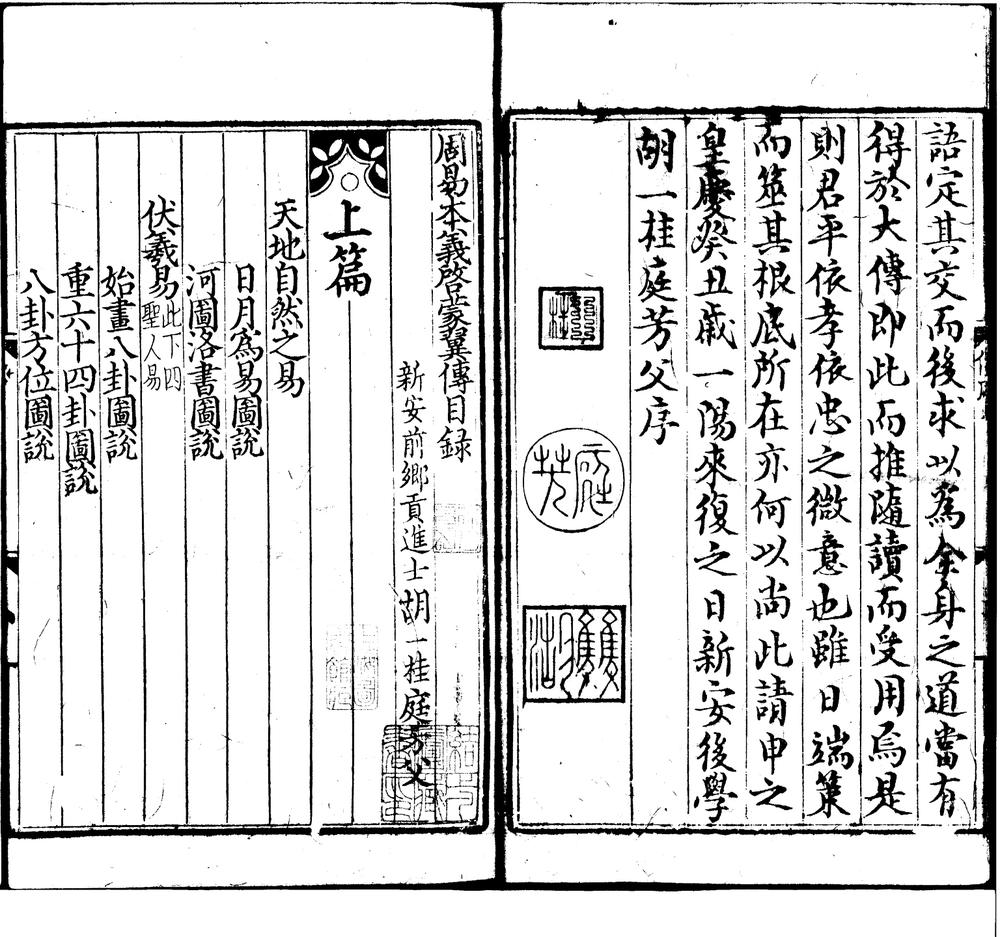 語定其交而後求以為全身之道當有
得於大傳即此而推隨讀而受用焉是
則君平依孝依忠之微意也雖日端策
而筮其根底所在亦何以尚此請申之
皇慶癸丑歲一陽來復之日新安後學
胡一桂庭芳父序
庭芳
雙湖
周易本義啓蒙翼傳目録
新安前鄉貢進士胡一桂庭芳父
上篇
天地自然之易
日月為易圖說
河圖洛書圖說
伏羲易此下四聖人易
始畫八卦圖說
重六十四卦圖說
八卦方位圖說